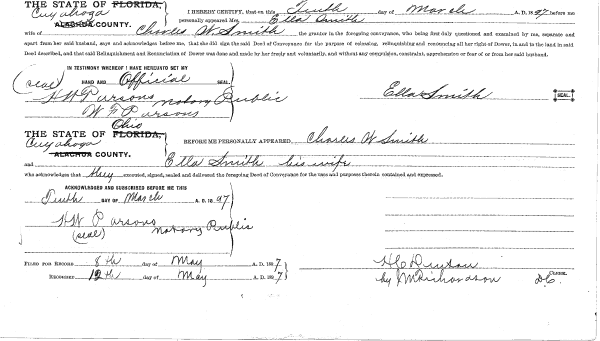 THE STATE OF FLORIDA,
Cuyahoga
ALACHUA COUNTY.
I HEREBY CERTIFY, that on this Tenth day of March A. D. 1897 before me
personally appeared Mrs. Ella Smith
wife of Charles W Smith, the grantor in the foregoing conveyance, who being first duly questioned and examined by me, separate and
apart from her said husband, says and acknowledges before me, that she did sign the said Deed of Conveyance for the purpose of releasing, relinquishing and renouncing all her right of Dower, in and to the land in said
Deed described, and that said Relinquishment and Renunciation of Dower was done and made by her freely and voluntarily, and without any compulsion, constraint, apprehension or fear of or from her said husband.
IN TESTIMONY WHEREOF I HAVE HEREUNTO SET MY
(seal) HAND AND Official SEAL.
HW Parsons Notary Public
W F Parsons
Ella Smith SEAL.
Ohio
THE STATE OF FLORIDA,
Cuyahoga
ALACHUA COUNTY.
BEFORE ME PERSONALLY APPEARED Charles W Smith
and Ella Smith his wife
who acknowledges that they executed, signed, sealed and delivered the foregoing Deed of Conveyance for the uses and purposes therein contained and expressed.
ACKNOWLEDGED AND SUBSCRIBED BEFORE ME THIS
Tenth DAY OF March A. D. 1897
HW Parsons
(seal) Notary Public
FILED FOR RECORD 8th day of May A. D. 1897
RECORDED 12th day of May A. D. 1897
HC Denton CLERK.
by M Richardson DC.